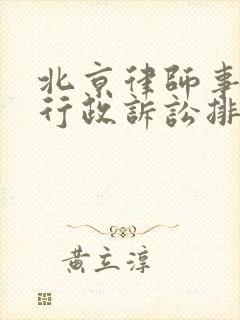 北京律師事
行政訴訟排
黃立淳